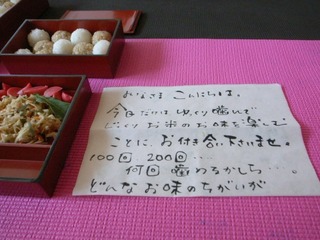 みなさま こんにちは。
今日だけは ゆっくり 噛んで
じっくり お米の お味を 楽しむ
ことに、お付き合い下さいませ。
100回 200回・・・
何回 噛めるかしら・・・。
どんな お味の ちがいが